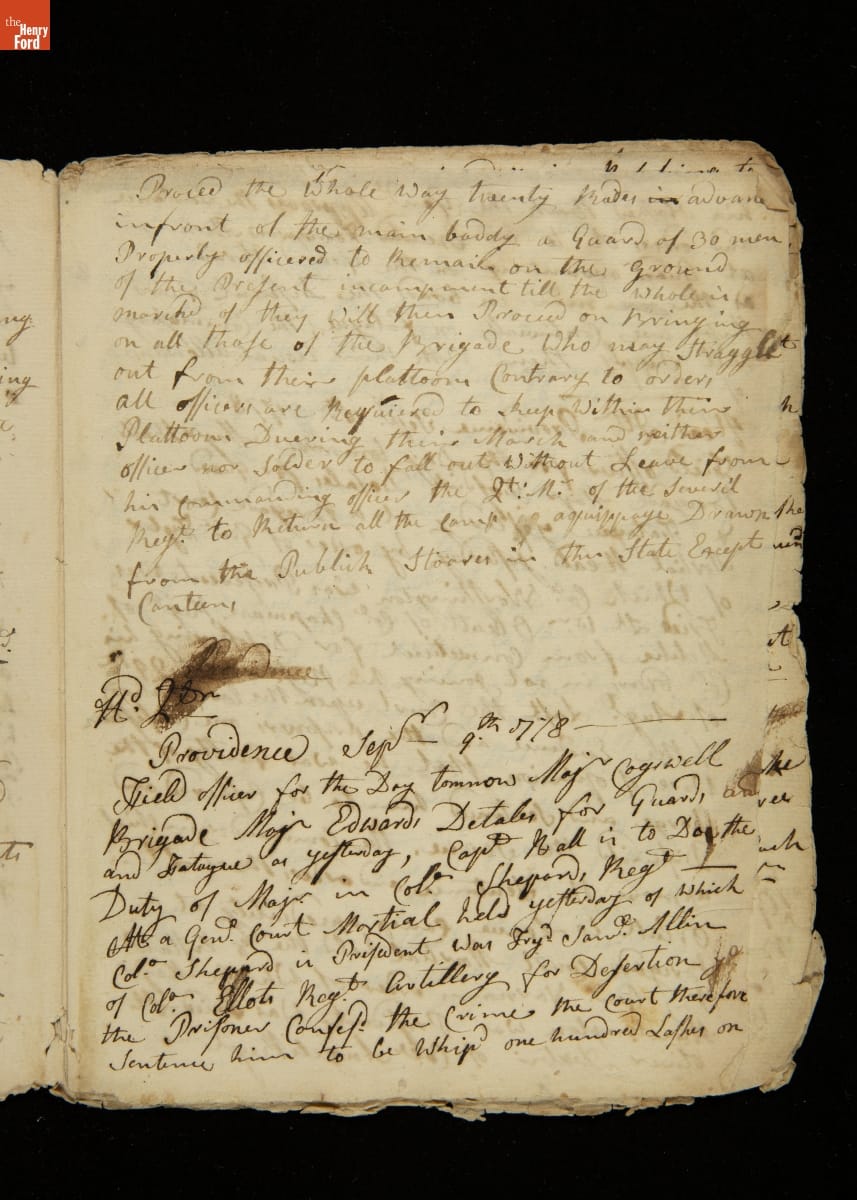 the
Henry
Ford
Proceed the Whole Way twenty Rodes in advanc
infront of the main boddy a Guard of 30 men
Properly officered to Remain on the Ground
of the Present incampment till the Whole is
marchd of they will then Proceed on Bringing
on all those of the Brigade Who may Straggle
out from their plattoon Contrary to orders
all officers are Requiered to keep Within their
Plattoon Duering their March and neither
officer nor Solder to fall out Without Leave from
his commanding officer the Qt. Mr. of the Severil
Regt to Return all the Camp aquippage Drawn
from the Publick Stoares in this State Except
Canteens
Providence
Hd. Qtr
Providence Sepr 9th 1778
Field officer for the Day tomnow Majr Cogswell
Brigade Majr Edwards Detales for Guards and
and Fatague as yesterday, Capt Hall is to Do the
Duty of Majr in Colo. Shepards Regt
At a Genl. Court Martial held yesterday of which
Colo. Sheperd is President was Tryd Saml. Allin
of Colo. Ellots Regt. Artillery for Desertion
the Prisoner Confesd. the Crime the Court therefore
Sentence him to be Whipd one hundred Lashes on